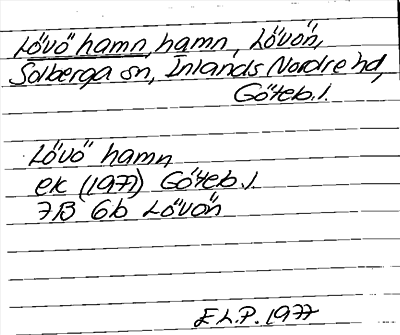 Lövö hamn, hamn, Lövön,
Solberga sn, Inlands Nordre hd,
Göteb. l.
Lövö hamn
ek (1977) Göteb. l.
7B 6b Lövön
E.L.P. 1977